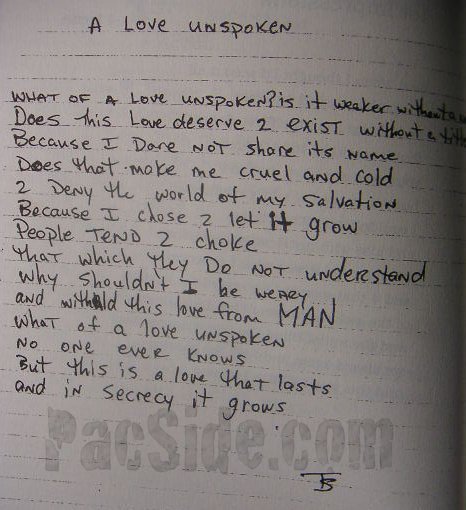 A Love UNSPOKEN
WHAT OF A Love UNSPOKEN? is it weaker without a
Does this Love deserve 2 exist without a
Because I Dare NOT share its NAME
Does that make me cruel and cold
2 Deny the world of my Salvation
Because I chose 2 let it grow
People TEND 2 choke
that which they Do NOT understand
why shouldn't I be weary
and withhold this love from MAN
what of a love UNSPOKEN
NO ONE ever KNOWS
But this is a love that lasts
and in secrecy it grows
PacSide.com